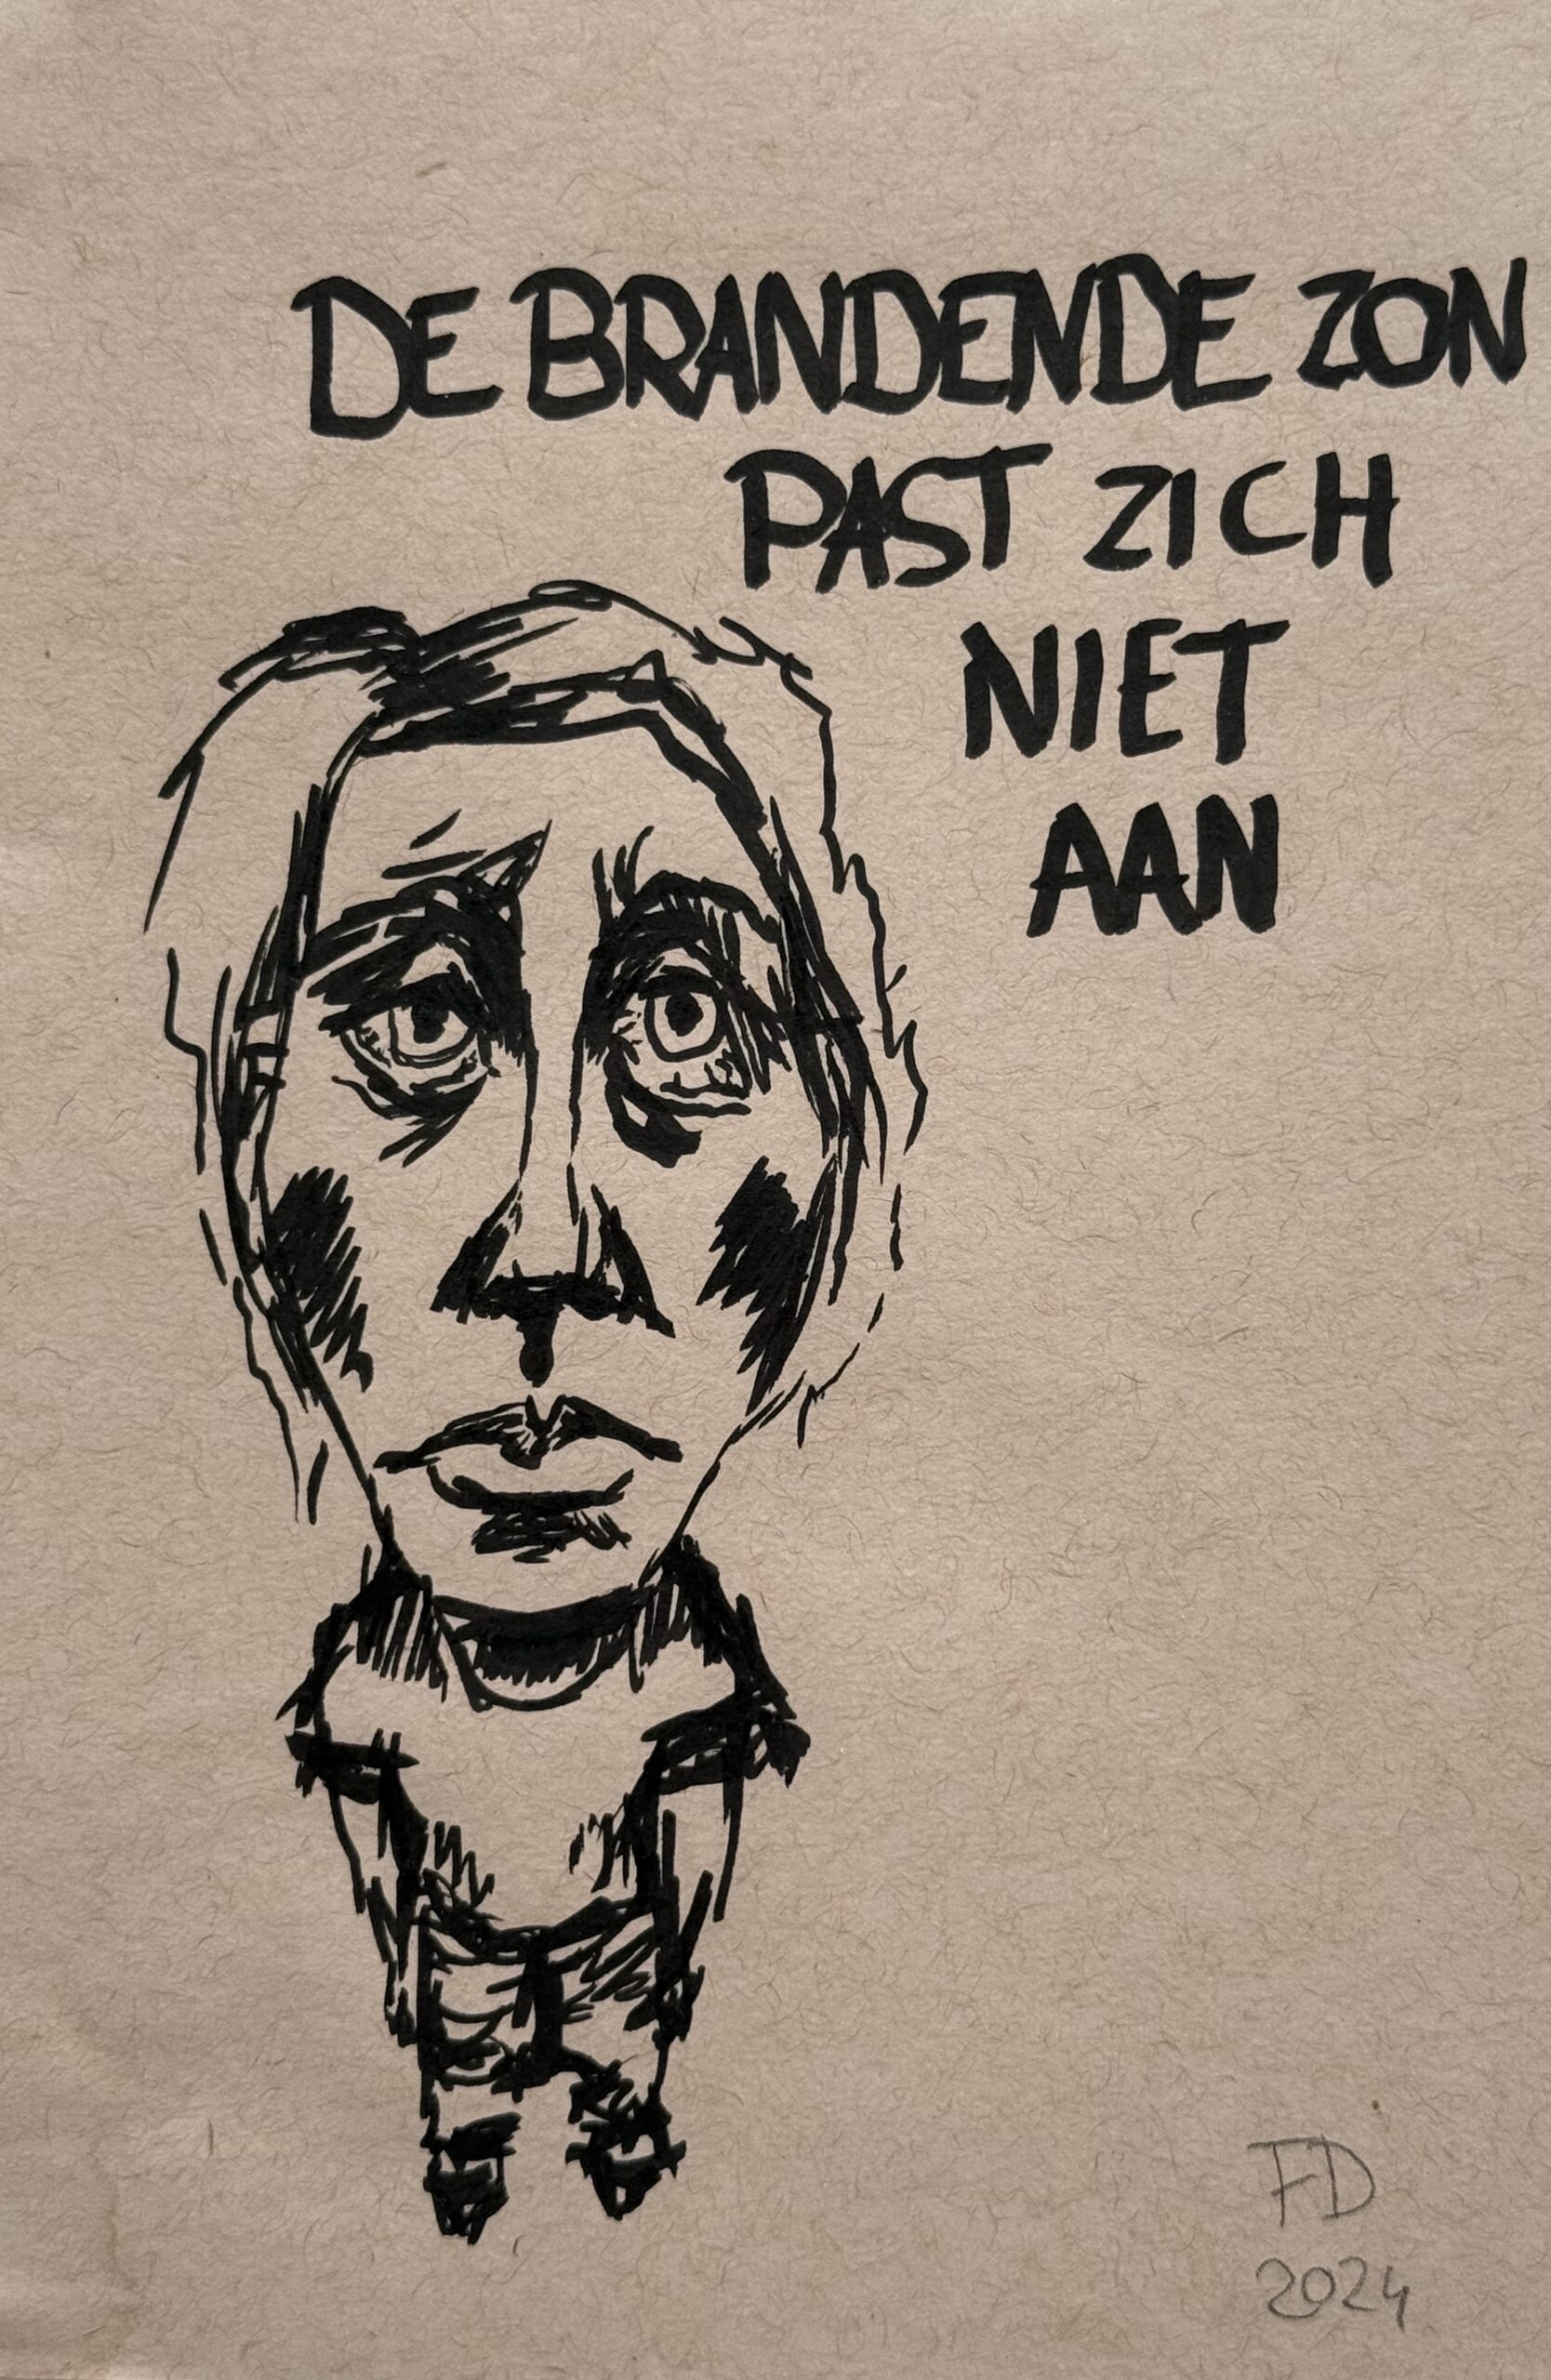 DE BRANDENDE ZON
PAST ZICH
NIET
AAN
FD
2024